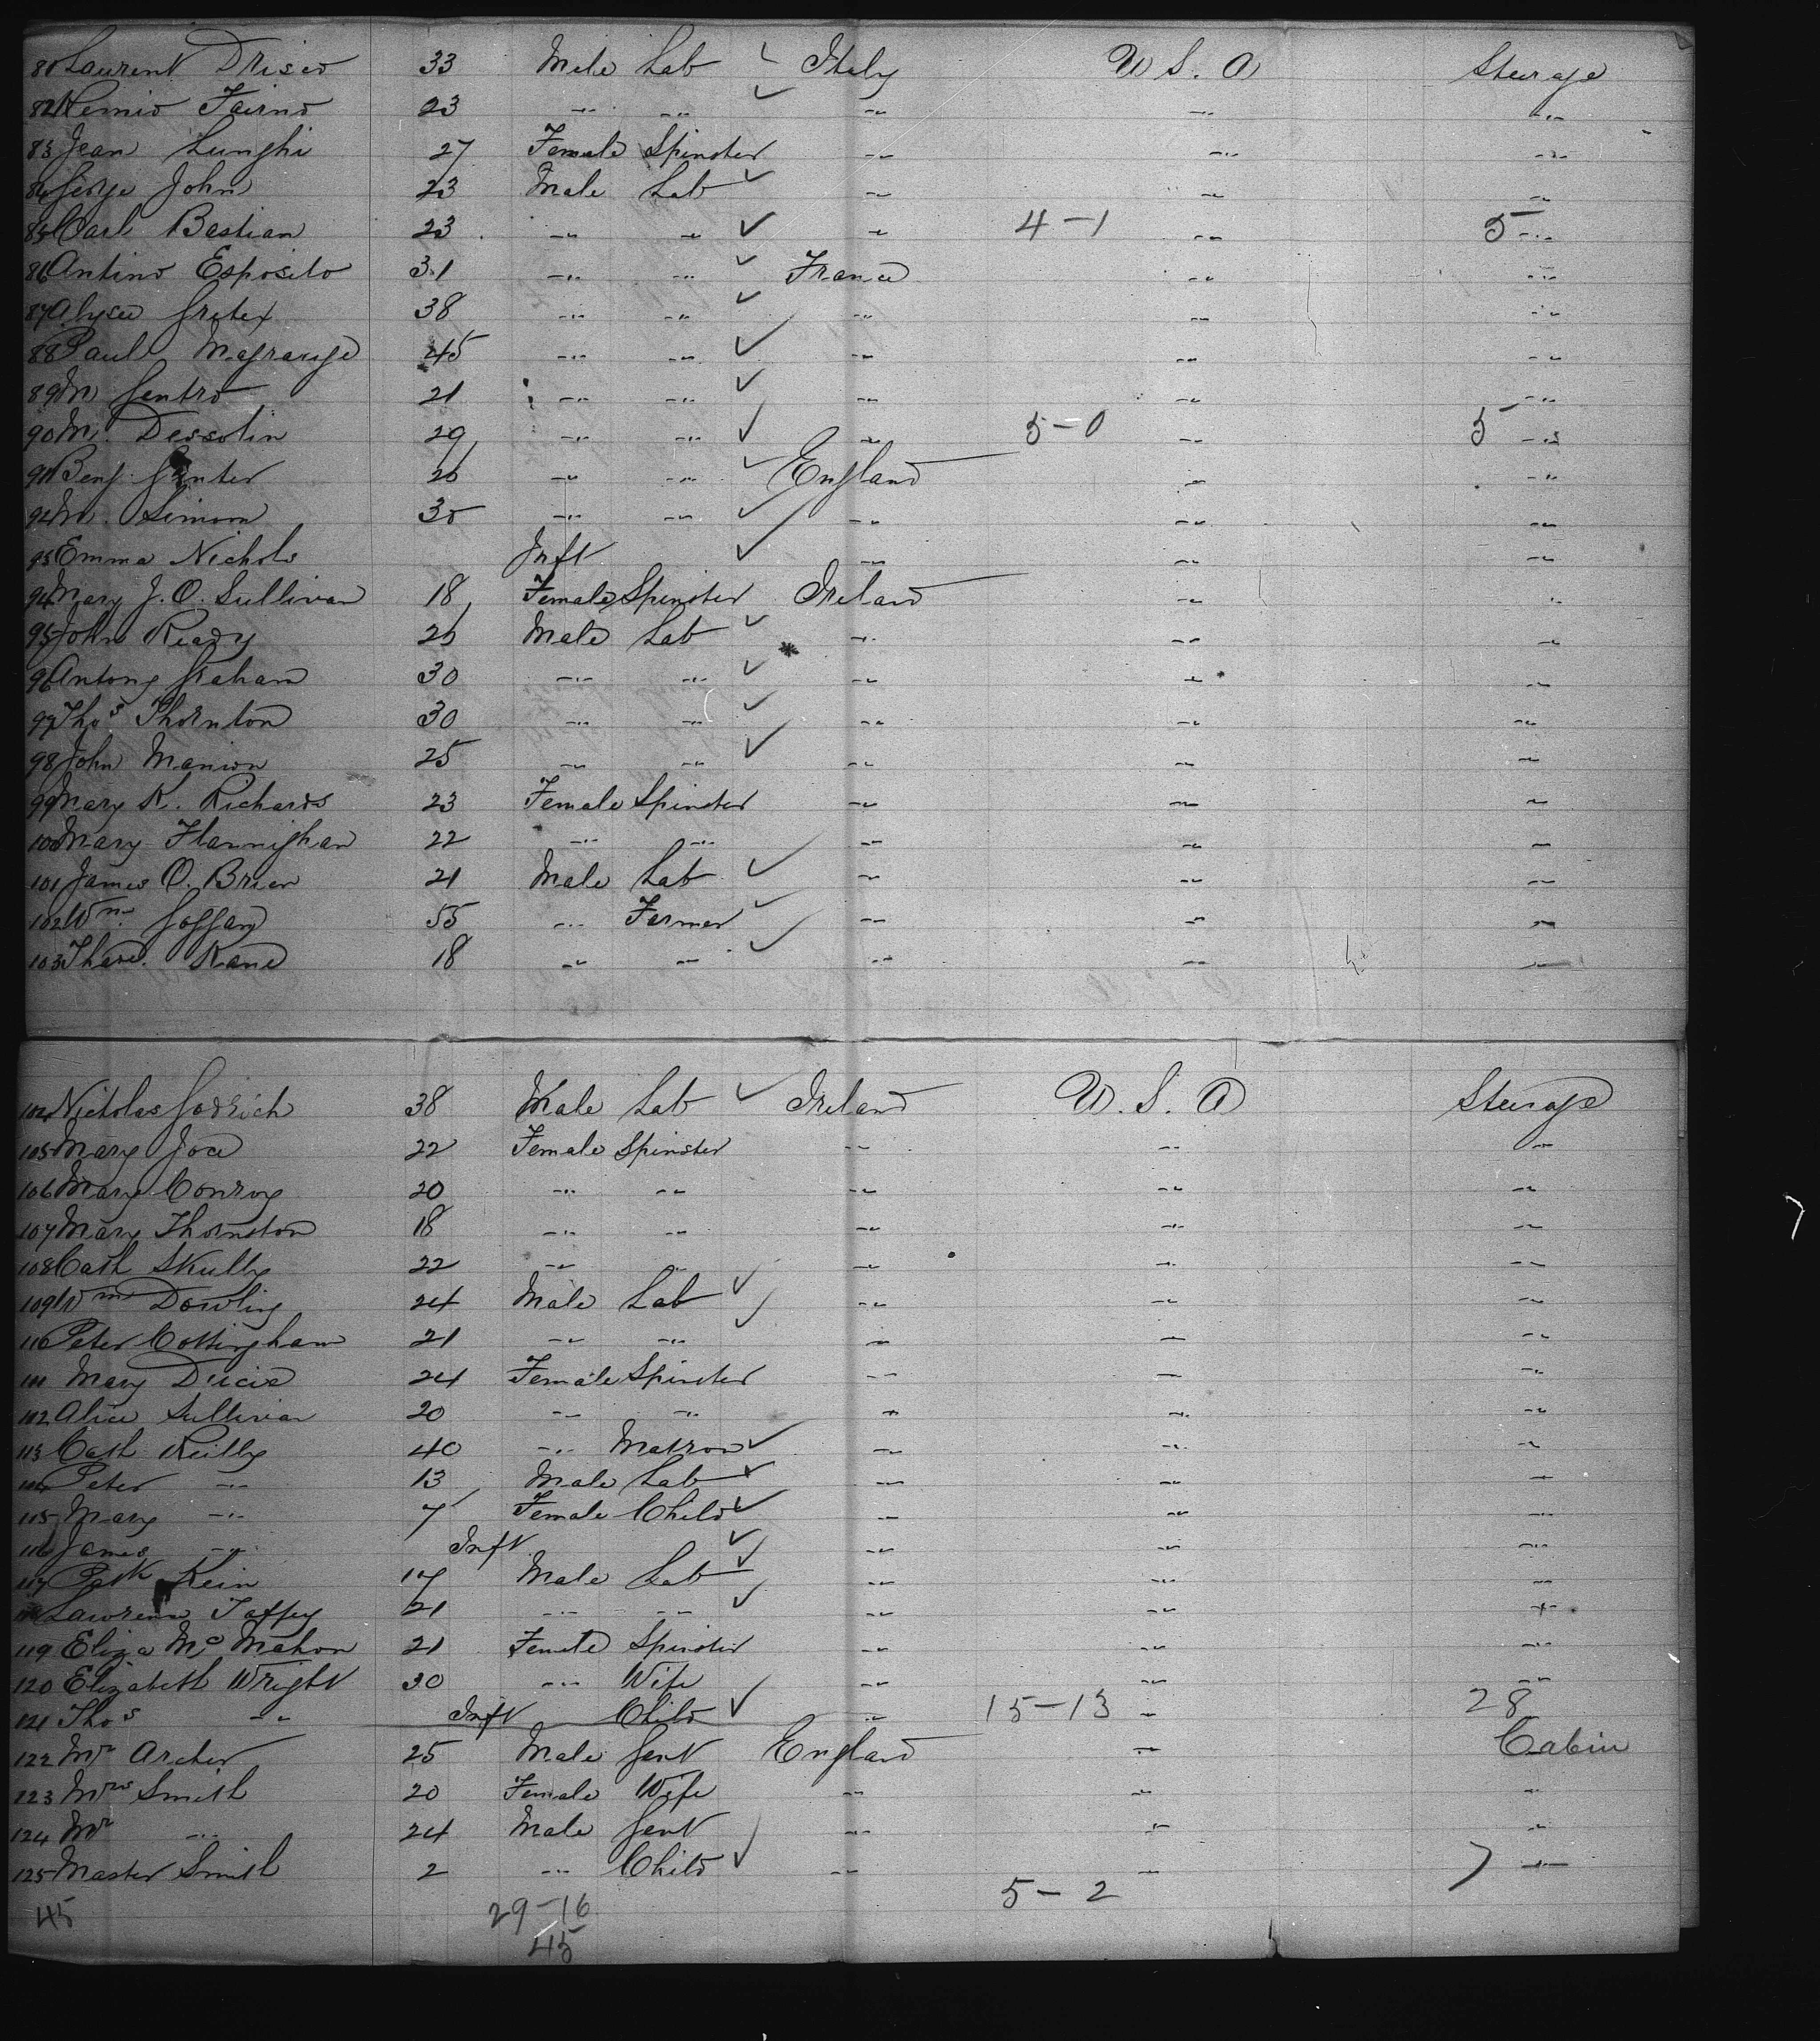 Laurent Drisco 33 Male Lab ✓ Italy U S. A Steerage
82 Remio Fairno 23 " " ✓ " " "
83 Jean Lunghi 27 Female Spinster " " "
84 George John 23 Male Lab ✓ " " "
85 Carl Bastian 23 " " ✓ " 4-1 " 5 "
86 Antino Esposito 31 " " ✓ France " "
87 Alysee Gretex 38 " " ✓ " " "
88 Paul Magrange 45 " " ✓ " " "
89 M Gentro 21 " " ✓ " " "
90 M. Dessolin 29 " " ✓ " 5-0 " 5 "
91 Benj. Gunter 26 " " ✓ England " "
92 M. Simoon 30 " " ✓ " " "
93 Emma Nichols Inft ✓ " " "
94 Mary J. O. Sullivan 18 Female Spinster Ireland " "
95 John Ready 26 Male Lab ✓ " " "
96 Antony Graham 30 " " ✓ " " "
97 Thos Thornton 30 " " ✓ " " "
98 John Manion 25 " " ✓ " " "
99 Mary K. Richards 23 Female Spinster " " "
100 Mary Flannighan 22 " " " " "
101 James O. Brien 21 Male Lab ✓ " " "
102 Wm Goffany 55 " Farmer ✓ " " "
103 Kane 18 " " ✓ " " "
104 Nicholas Godrich 38 Male Lab ✓ Ireland U. S. A Steerage
105 Mary Joce 22 Female Spinster " " "
106 Mary Conroy 20 " " " " "
107 Mary Thornston 18 " " " " "
108 Cath Skully 22 " " " " "
109 Wm Dowling 24 Male Lab ✓ " " "
110 Peter Cottingham 21 " " ✓ " " "
111 Mary Ducie 24 Female Spinster " " "
112 Alice Sullivan 20 " " " " "
113 Cath Reilly 40 " Matron ✓ " " "
114 Peter " 13 Male Lab ✓ " " "
115 Mary " 7 Female Child ✓ " " "
116 James " Inft ✓ " " "
117 Patk Kein 17 Male Lab ✓ " " "
118 Lawrence Taffey 21 " " ✓ " " "
119 Eliza Mc Mahon 21 Female Spinster " " "
120 Elizabeth Wright 30 " Wife " " "
121 Thos " Inft Child ✓ " 15-13 " 28
122 Mr Archer 25 Male Gent England " Cabin
123 Mrs Smith 20 Female Wife " " "
124 Mr " 24 Male Gent " " "
125 Master Smith 2 " Child ✓ " " 7 "
5-2
45 29-16
45